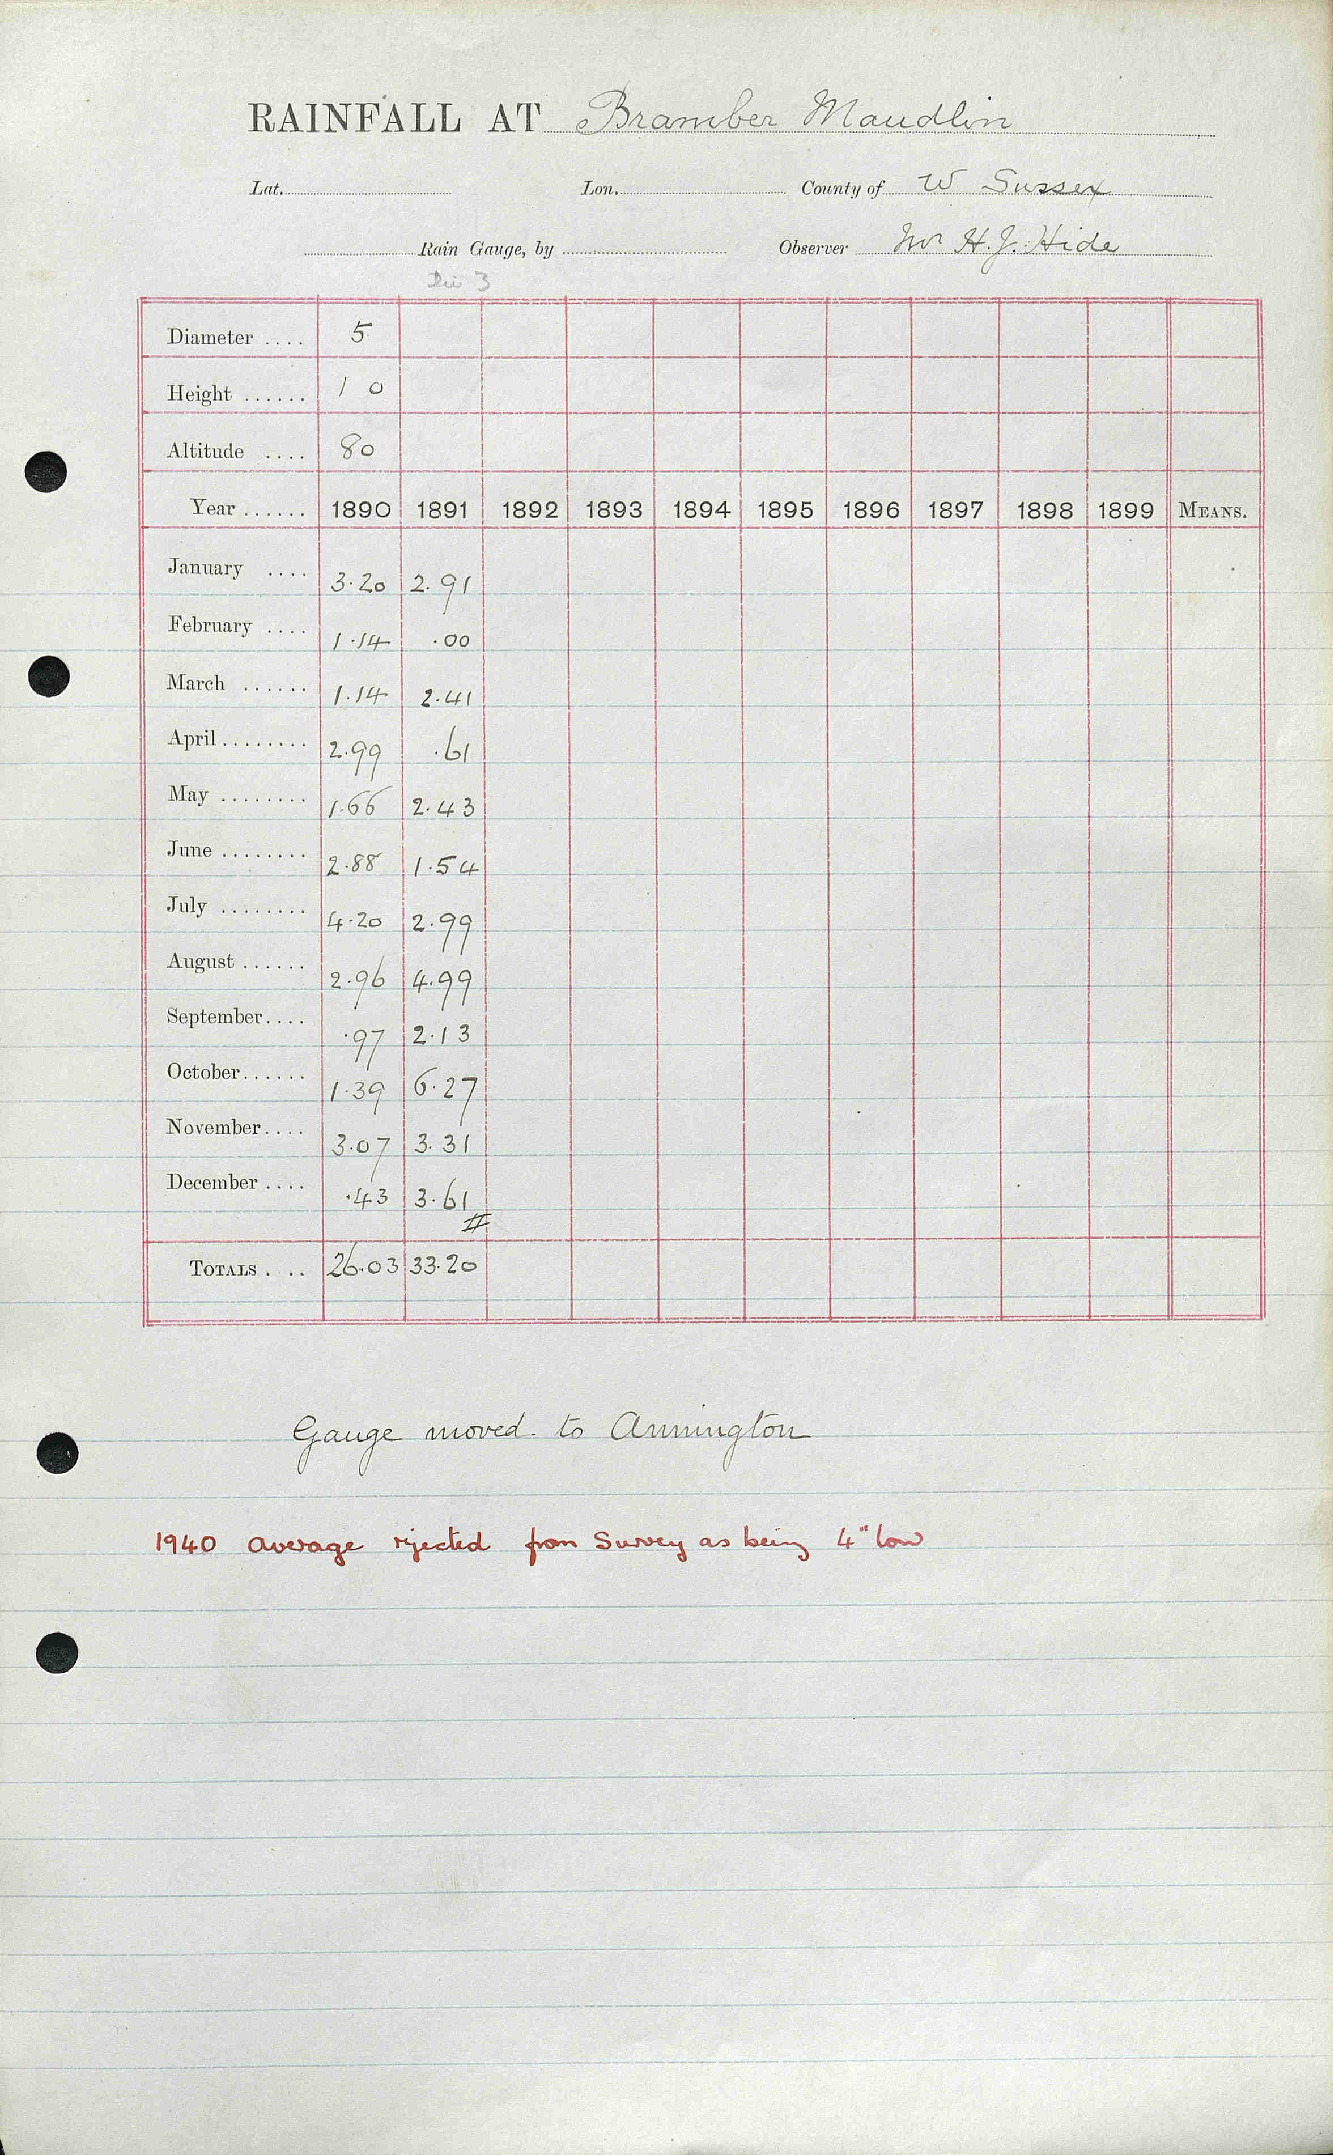 RAINFALL AT Bramber Maudlin
Lat. Lon. County of W Sussex
Rain Gauge, by Observer Mr H. J. Hide
Diameter .... 5
Height ...... 1 0
Altitude .... 80
Year ...... 1890 1891 1892 1893 1894 1895 1896 1897 1898 1899 MEANS.
January .... 3.20 2.91
February .... 1.14 .00
March ...... 1.14 2.41
April ........ 2.99 .61
May ........ 1.66 2.43
June ........ 2.88 1.54
July ........ 4.20 2.99
August ...... 2.96 4.99
September.... .97 2.13
October...... 1.39 6.27
November.... 3.07 3.31
December .... .43 3.61
#
TOTALS . .. 26.03 33.20
Gauge moved to Annington
1940 average rejected from Survey as being 4" low